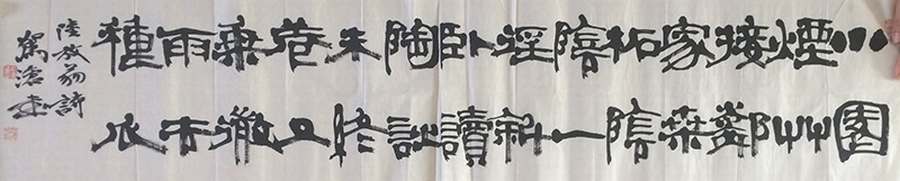 小園
煙艸
接鄰
家桑
柘陰
陰一
徑斜
臥讀
陶詩
未終
卷又
乘微
雨去
種瓜
陸放翁詩
書